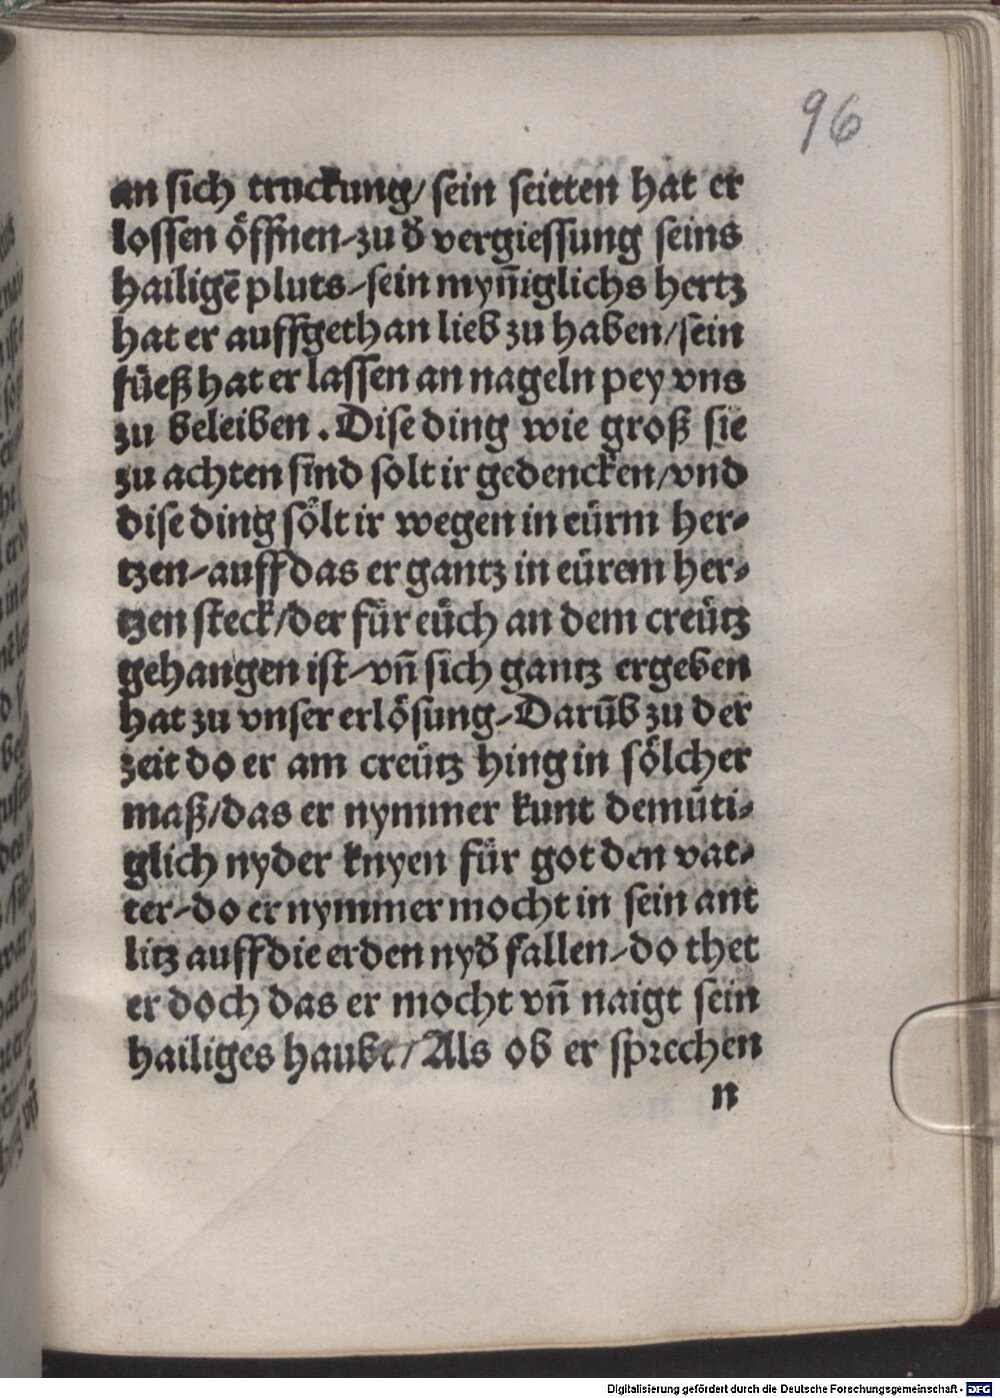 96
an sich truckung/ sein seitten hat er
lossen öffnen-zu d̕ vergiessung seins
hailigē pluts-sein myn̄iglichs hertz
hat er auffgethan lieb zu haben/sein
füeß hat er lassen an nageln pey vns
zu beleiben. Dise ding wie groß sie
zu achten sind solt ir gedencken/vnd
dise ding sölt ir wegen in eürm her-
tzen-auff das er gantz in eürem her-
tzen steck/der für eüch an dem creütz
gehangen ist-vn̄ sich gantz ergeben
hat zu vnser erlösung-Darūb zu der
zeit do er am creütz hing in sölcher
maß/das er nymmer kunt demüti-
glich nyder knyen für got den vat-
ter-do er nymmer mocht in sein ant
litz auff die erden nyd̕ fallen-do thet
er doch das er mocht vn̄ naigt sein
hailiges haubt/Als ob er sprechen
n
Digitalisierung gefördert durch die Deutsche Forschungsgemeinschaft - DFG